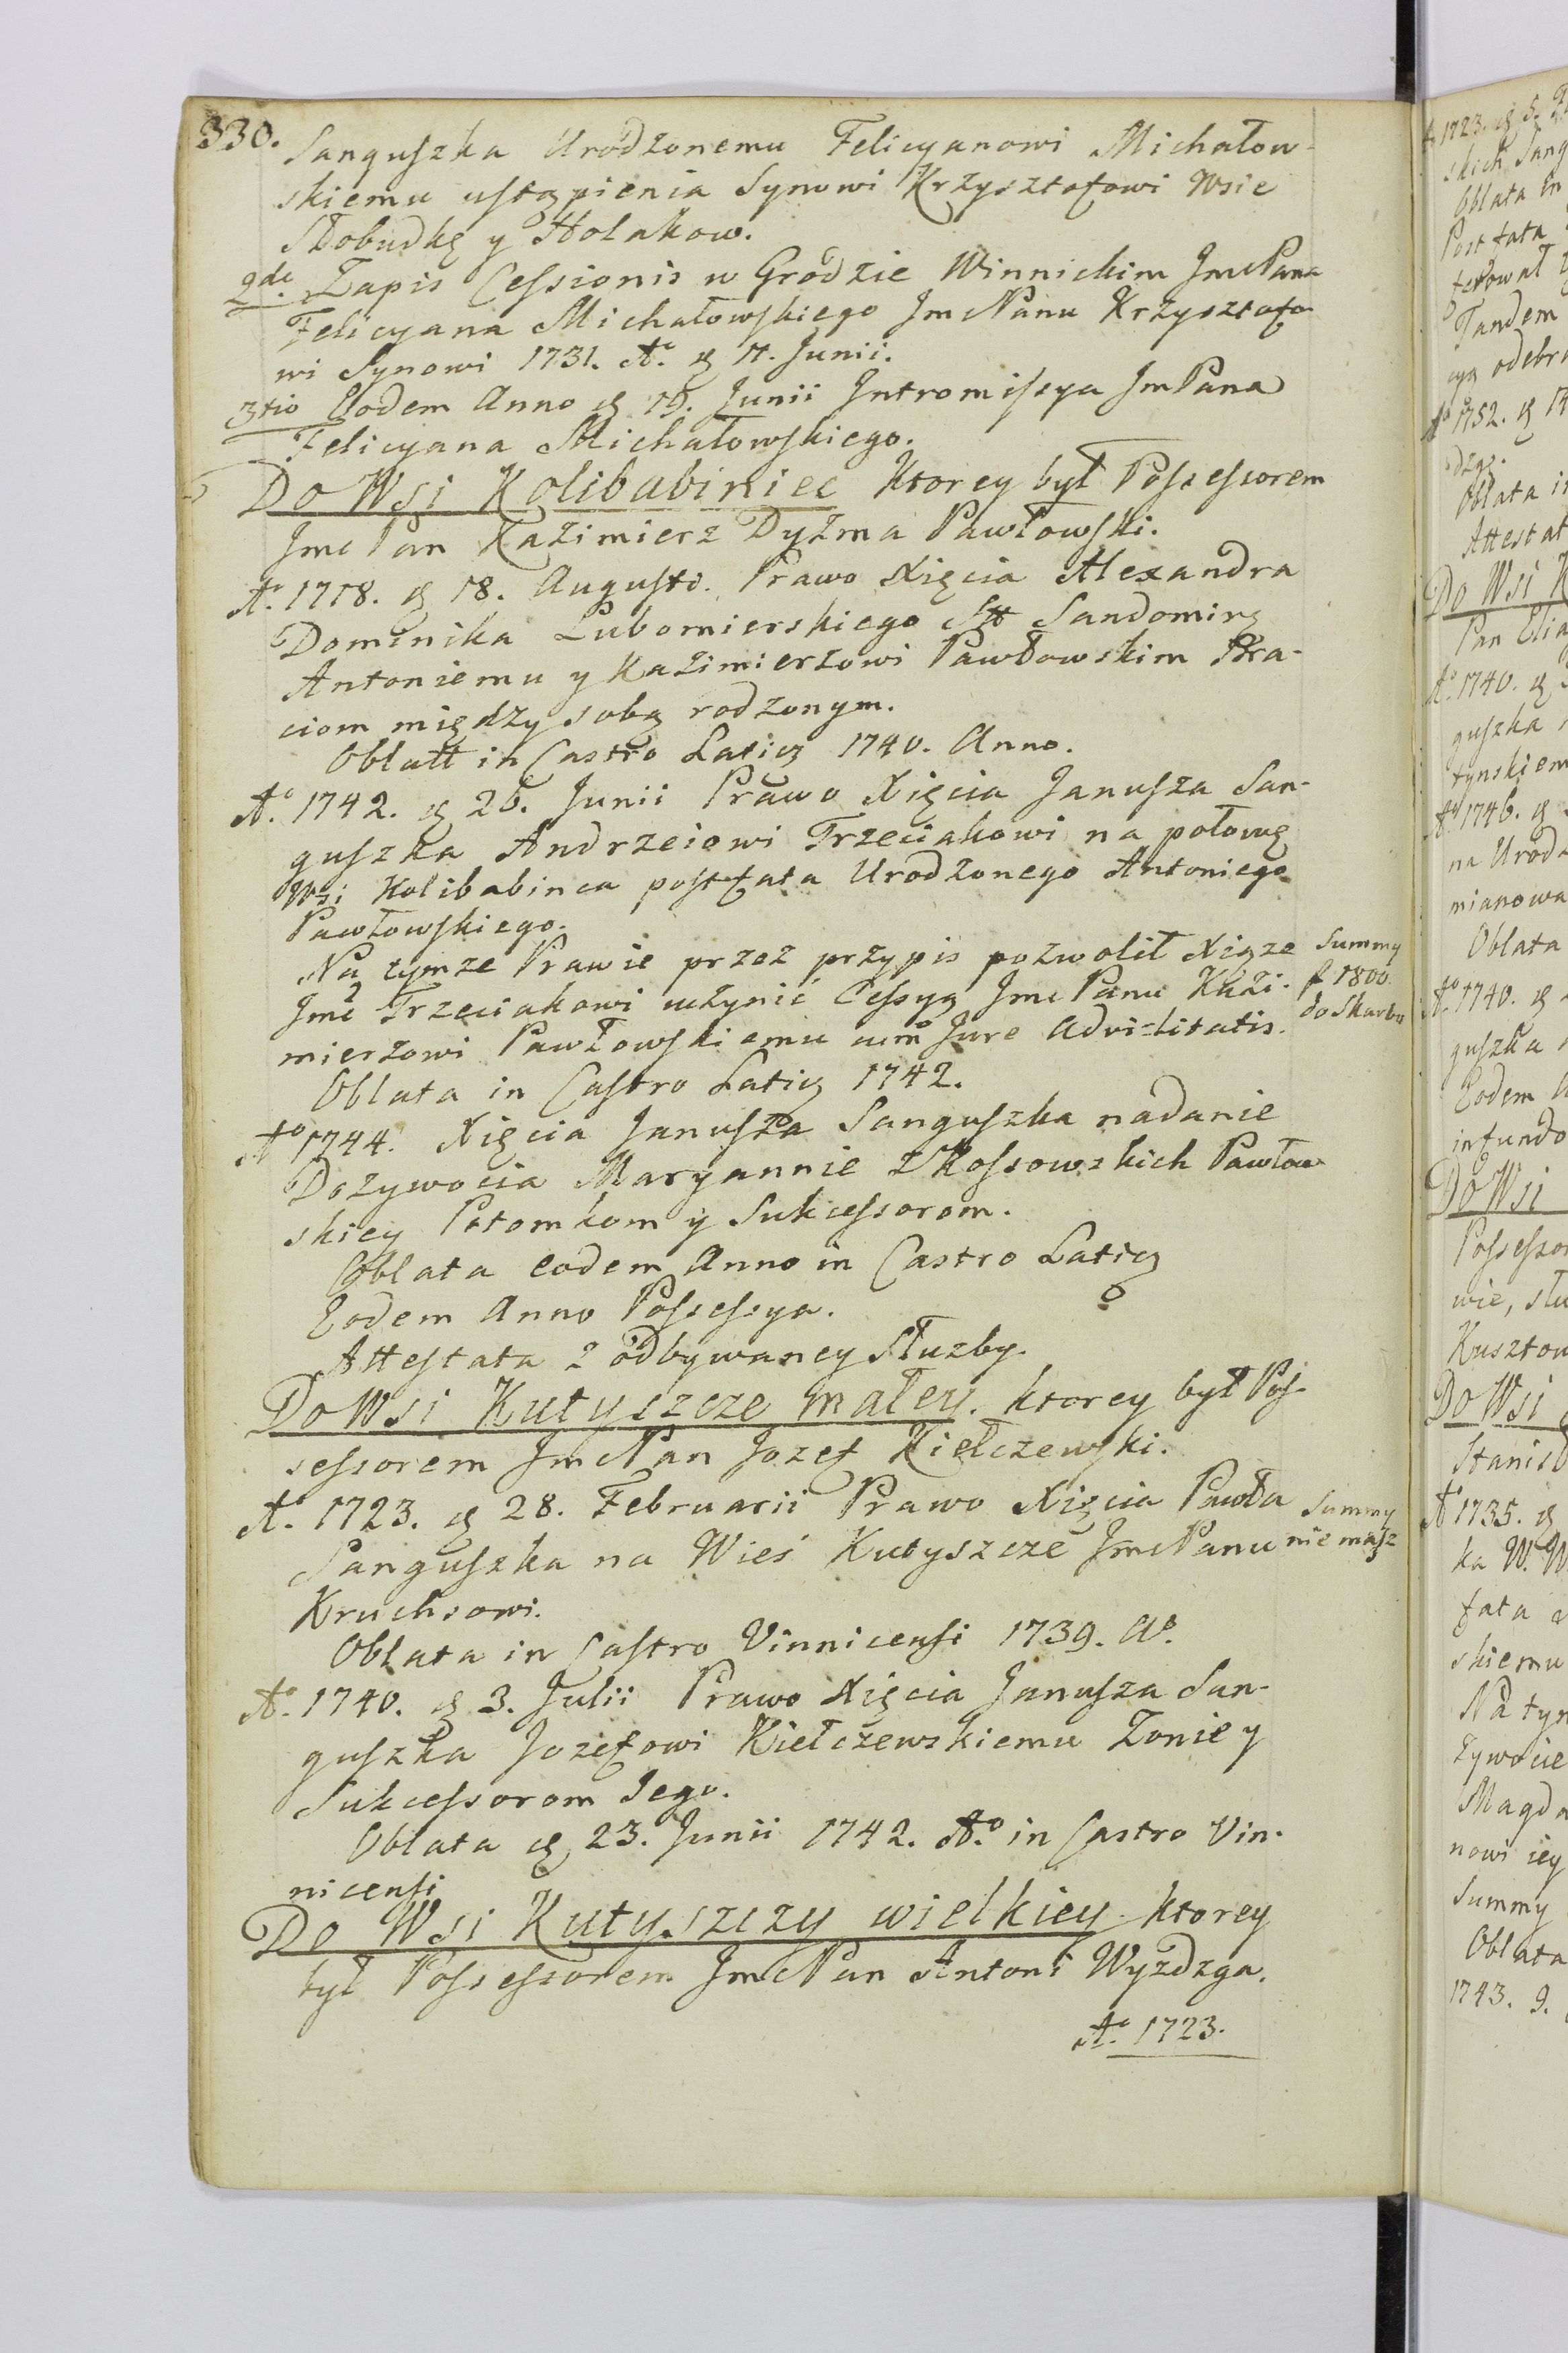 330.
Sanguszka Urodzonemu Felicyanowi Michałow-
skiemu ustąpienia Synowi Krzysztofowi Wsie
Słobudkę y Holakow.
2do. Zapis Cessionis w Grodzie Winnickim JmcPana
Felicyana Michałowskiego Jmc Panu Krzysztofo
wi Synowi 1731. Ao. d 17. Junii.
3tio Eodem Anno d 19. Junii Intromissya JmPana
Felicyana Michałowskiego.
Do Wsi Kolibabiniec ktorey był Possessorem
Jmc Pan Kazimierz Dyzma Pawłowski.
Ao. 1718. d 18. Augusti. Prawo Xięcia Alexandra
Dominika Lubomierskiego Stt Sandomirz
Antoniemu y Kazimierzowi Pawłowskim Bra-
ciom między sobą rodzonym.
Oblatt in Castro Laticz 1740. Anno.
Ao. 1742. d 26. Junii Prawo Xięcia Janusza San-
guszka Andrzeiowi Trzeciakowi na połowę
Wsi Kolibabinca post fata Urodzonego Antoniego
Pawłowskiego.
Na tymze Prawie przez przypis pozwolił Xiąze
Jmc Trzeciakowi uczynić Cessyą Jmc Panu Kazi-
mierzowi Pawłowskiemu cum Jure advitalitatis.
Summy
f 1800.
do Skarbu
Oblata in Castro Laticz 1742.
Ao 1744. Xięcia Janusza Sanguszka nadanie
Dozywocia Maryannie z Kossowskich Pawłow
skiey Potomkom y Sukcessorom.
Oblata eodem Anno in Castro Laticz
Eodem Anno Possessya.
Attestata z odbywaney Słuzby.
Do Wsi Kutyszcze małey. ktorey był Pos-
sessorem Jmc Pan Jozef Kiełczewski.
Ao. 1723. d 28. Februarii Prawo Xięcia Pawła
Sanguszka na Wieś Kutyszcze Jmc Panu
Kruchsowi.
Summy
nie masz
Oblata in Castro Vinnicensi 1739. Ao.
Ao. 1740. d 3. Julii Prawo Xięcia Janusza San-
guszka Jozefowi Kiełczewskiemu Zonie y
Sukcessorom Jego.
Oblata d 23. Junii 1742. Ao. in Castro Vin-
nicensi
Do Wsi Kutyszczy wielkiey ktorey
był Possessorem Jmc Pan Antoni Wyzdzga.
Ao. 1723.